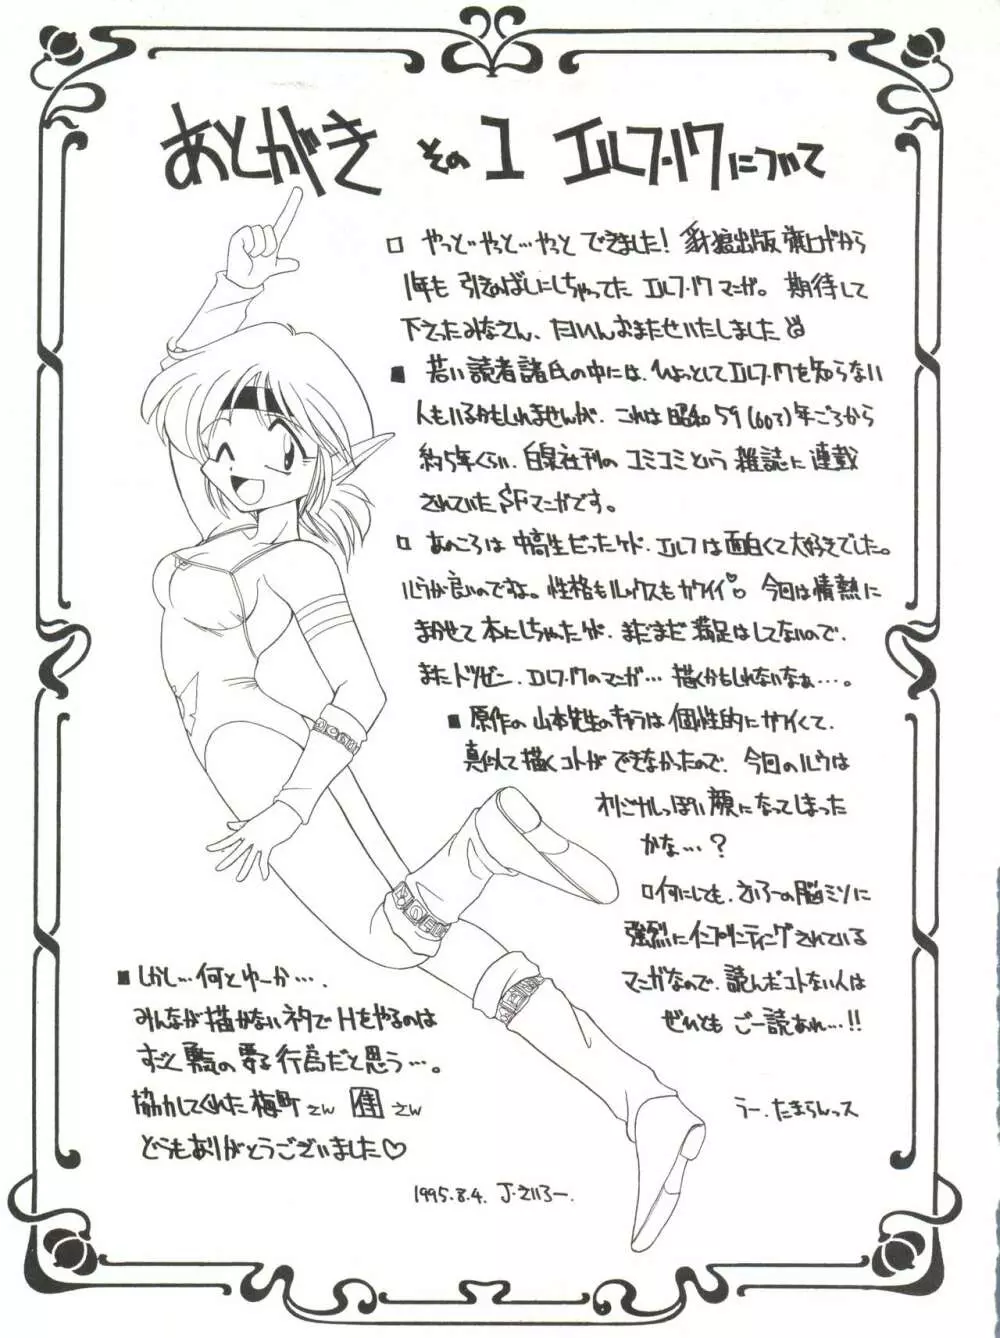 あとがき その1 エルフ・17について
□ やっと…やっと…やっと できました! 豺狼出版 旗上げから
1年も 引きのばしにしちゃってた エルフ・17 マンガ。 期待して
下さったみなさん、たいへんおまたせいたしました
■ 若い読者諸氏の中には、ひょっとしてエルフ・17を知らない
人もいるかもしれませんが、これは 昭和59(60?)年ごろから
約5年くらい、白泉社刊の コミコミという 雑誌に 連載
されていた SFマンガです。
□ あのころは 中高生だったケド、エルフは面白くて大好きでした。
ルウが良いのですね。性格もルックスもカワイイ♡ 今回は情熱に
まかせて 本にしちゃったケド、まだまだ 満足はしてないので、
またトツゼン、エルフ・17のマンガ… 描くかもしれないなぁ…。
■ 原作の 山本先生のキャラは 個性的にカワイくて、
真似て描くコトが できなかったので、今回のルウは
オリジナルっぽい 顔になってしまった
かな…?
□何にしても、さいろーの脳ミソに
強烈にインプリンティングされている
マンガなので、読んだコトない人は
ぜひとも ご一読あれ…!!
うー、たまらんっス
■しかし…何とゆーか…、
みんなが描かないネタでHをやるのは
すごく 勇気の要る 行為だと思う…。
協力してくれた 梅町さん 佳さん
どうもありがとうございました♡
1995.8.4. J・さいろー.